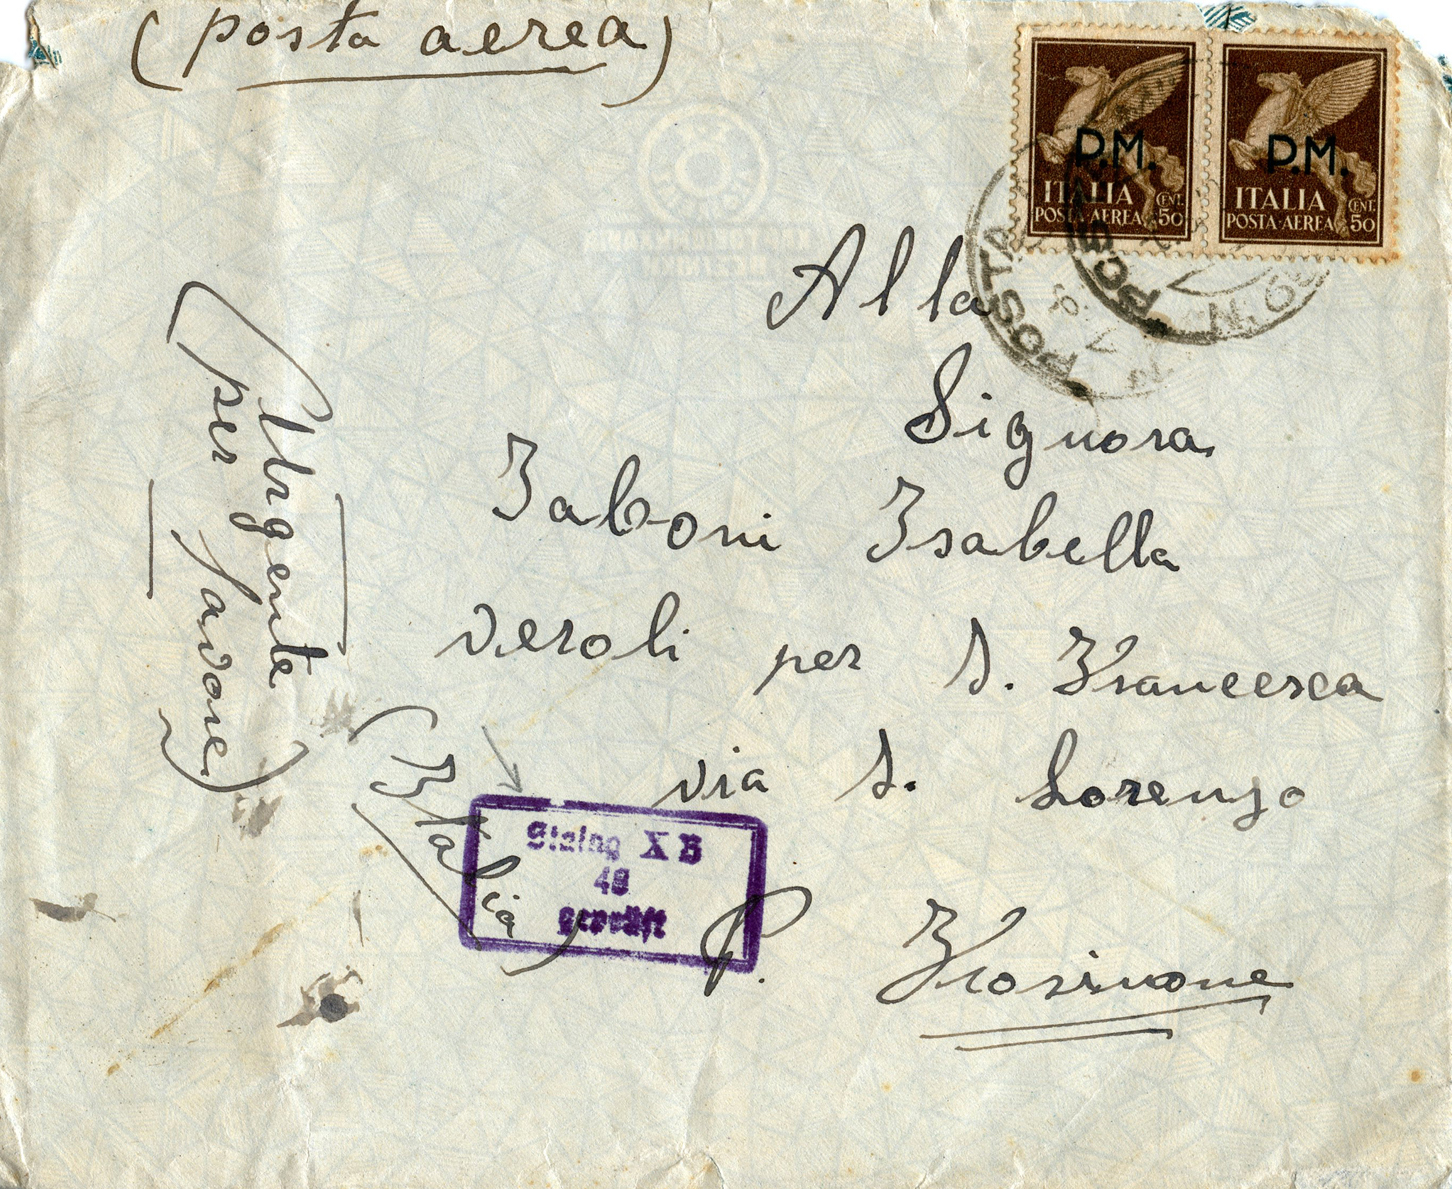 (posta aerea)
P.M.
ITALIA
POSTA-AEREA
CENT. 50
P.M.
ITALIA
POSTA-AEREA
CENT. 50
POSTA
POS
N.
Alla
Signora
Zaboni Isabella
Veroli per S. Francesca
via S. Lorenzo
P. Frosinone
(Italia)
(Urgente
per favore)
Stalag X B
48
geprüft